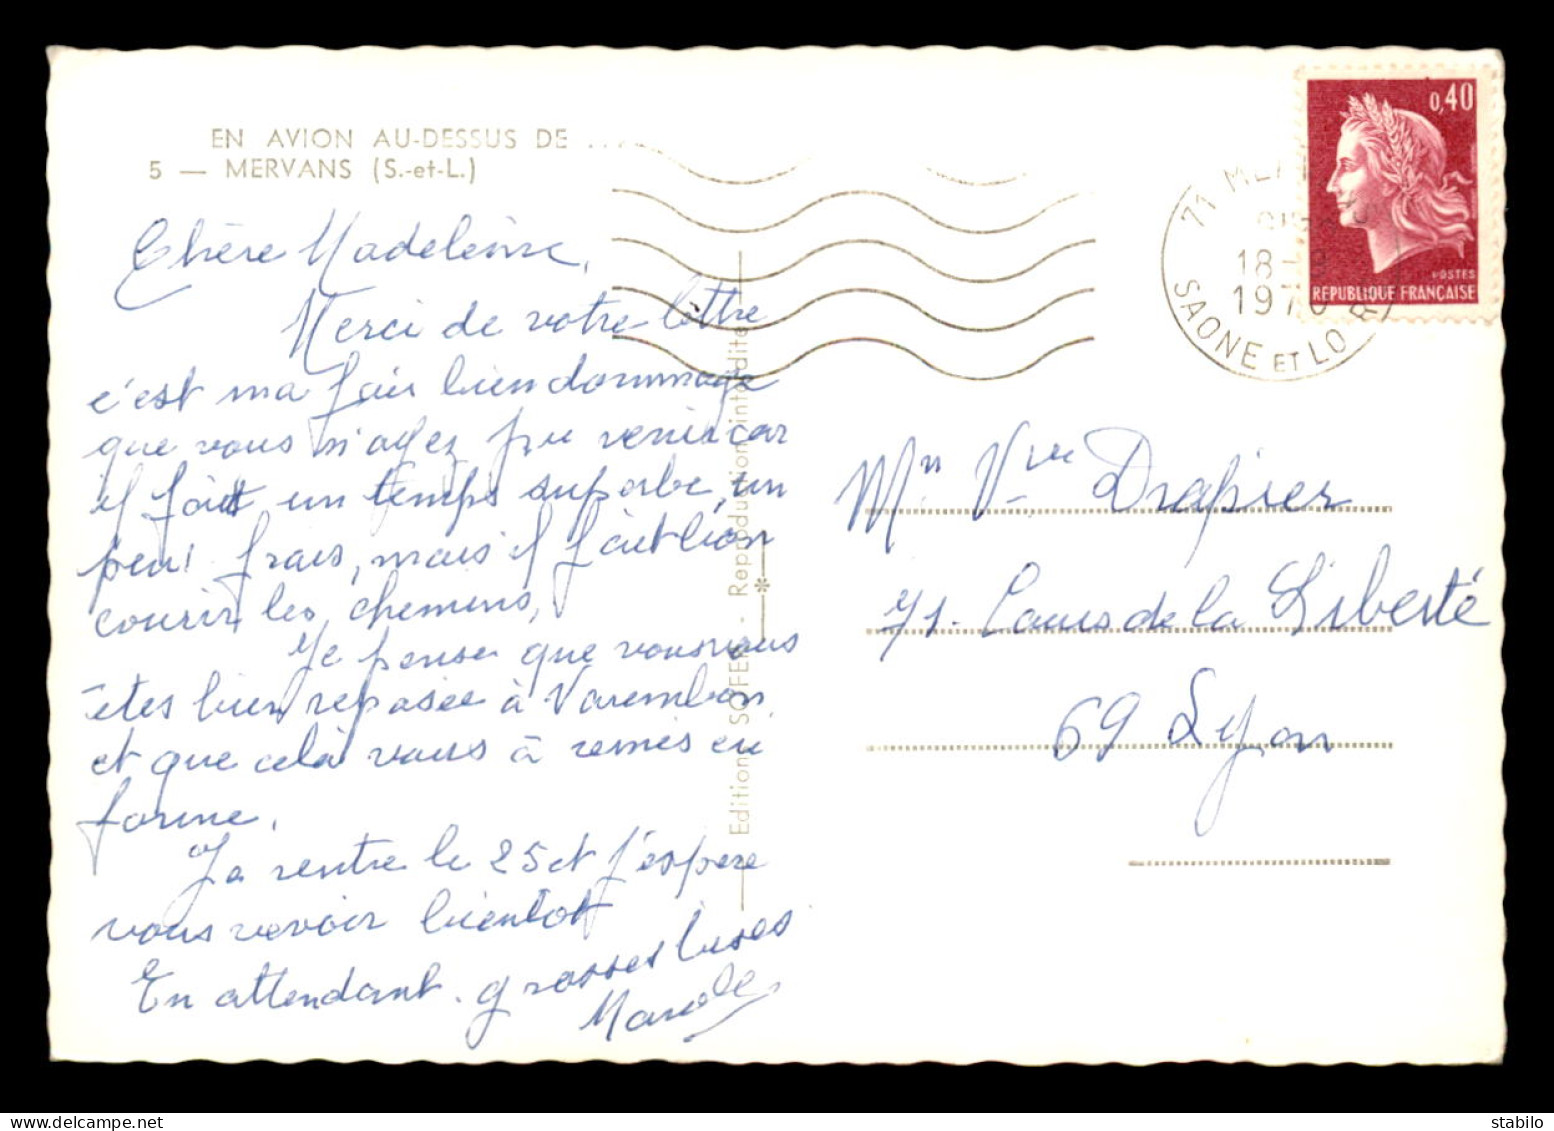 EN AVION AU-DESSUS DE ...
5 — MERVANS (S.-et-L.)
Chère Madeleine,
Merci de votre lettre
c'est ma fair bien dommage
que vous n'ayez pu venir car
il fait un temps superbe, un
peu frais, mais il fait bon
courir les chemins,
Je pense que vous vous
êtes bien reposée à Varembon
et que celà vous à remis en
forme.
Ja rentre le 25 et j'espere
vous revoir bientot
En attendant grosses bises
Editions SOFER - Reproduction interdite
0,40
POSTES
REPUBLIQUE FRANÇAISE
71
18-
197
SAONE ET LO
Mm Vve Drapier
71. Cours de la Liberté
69 Lyon
stabilo